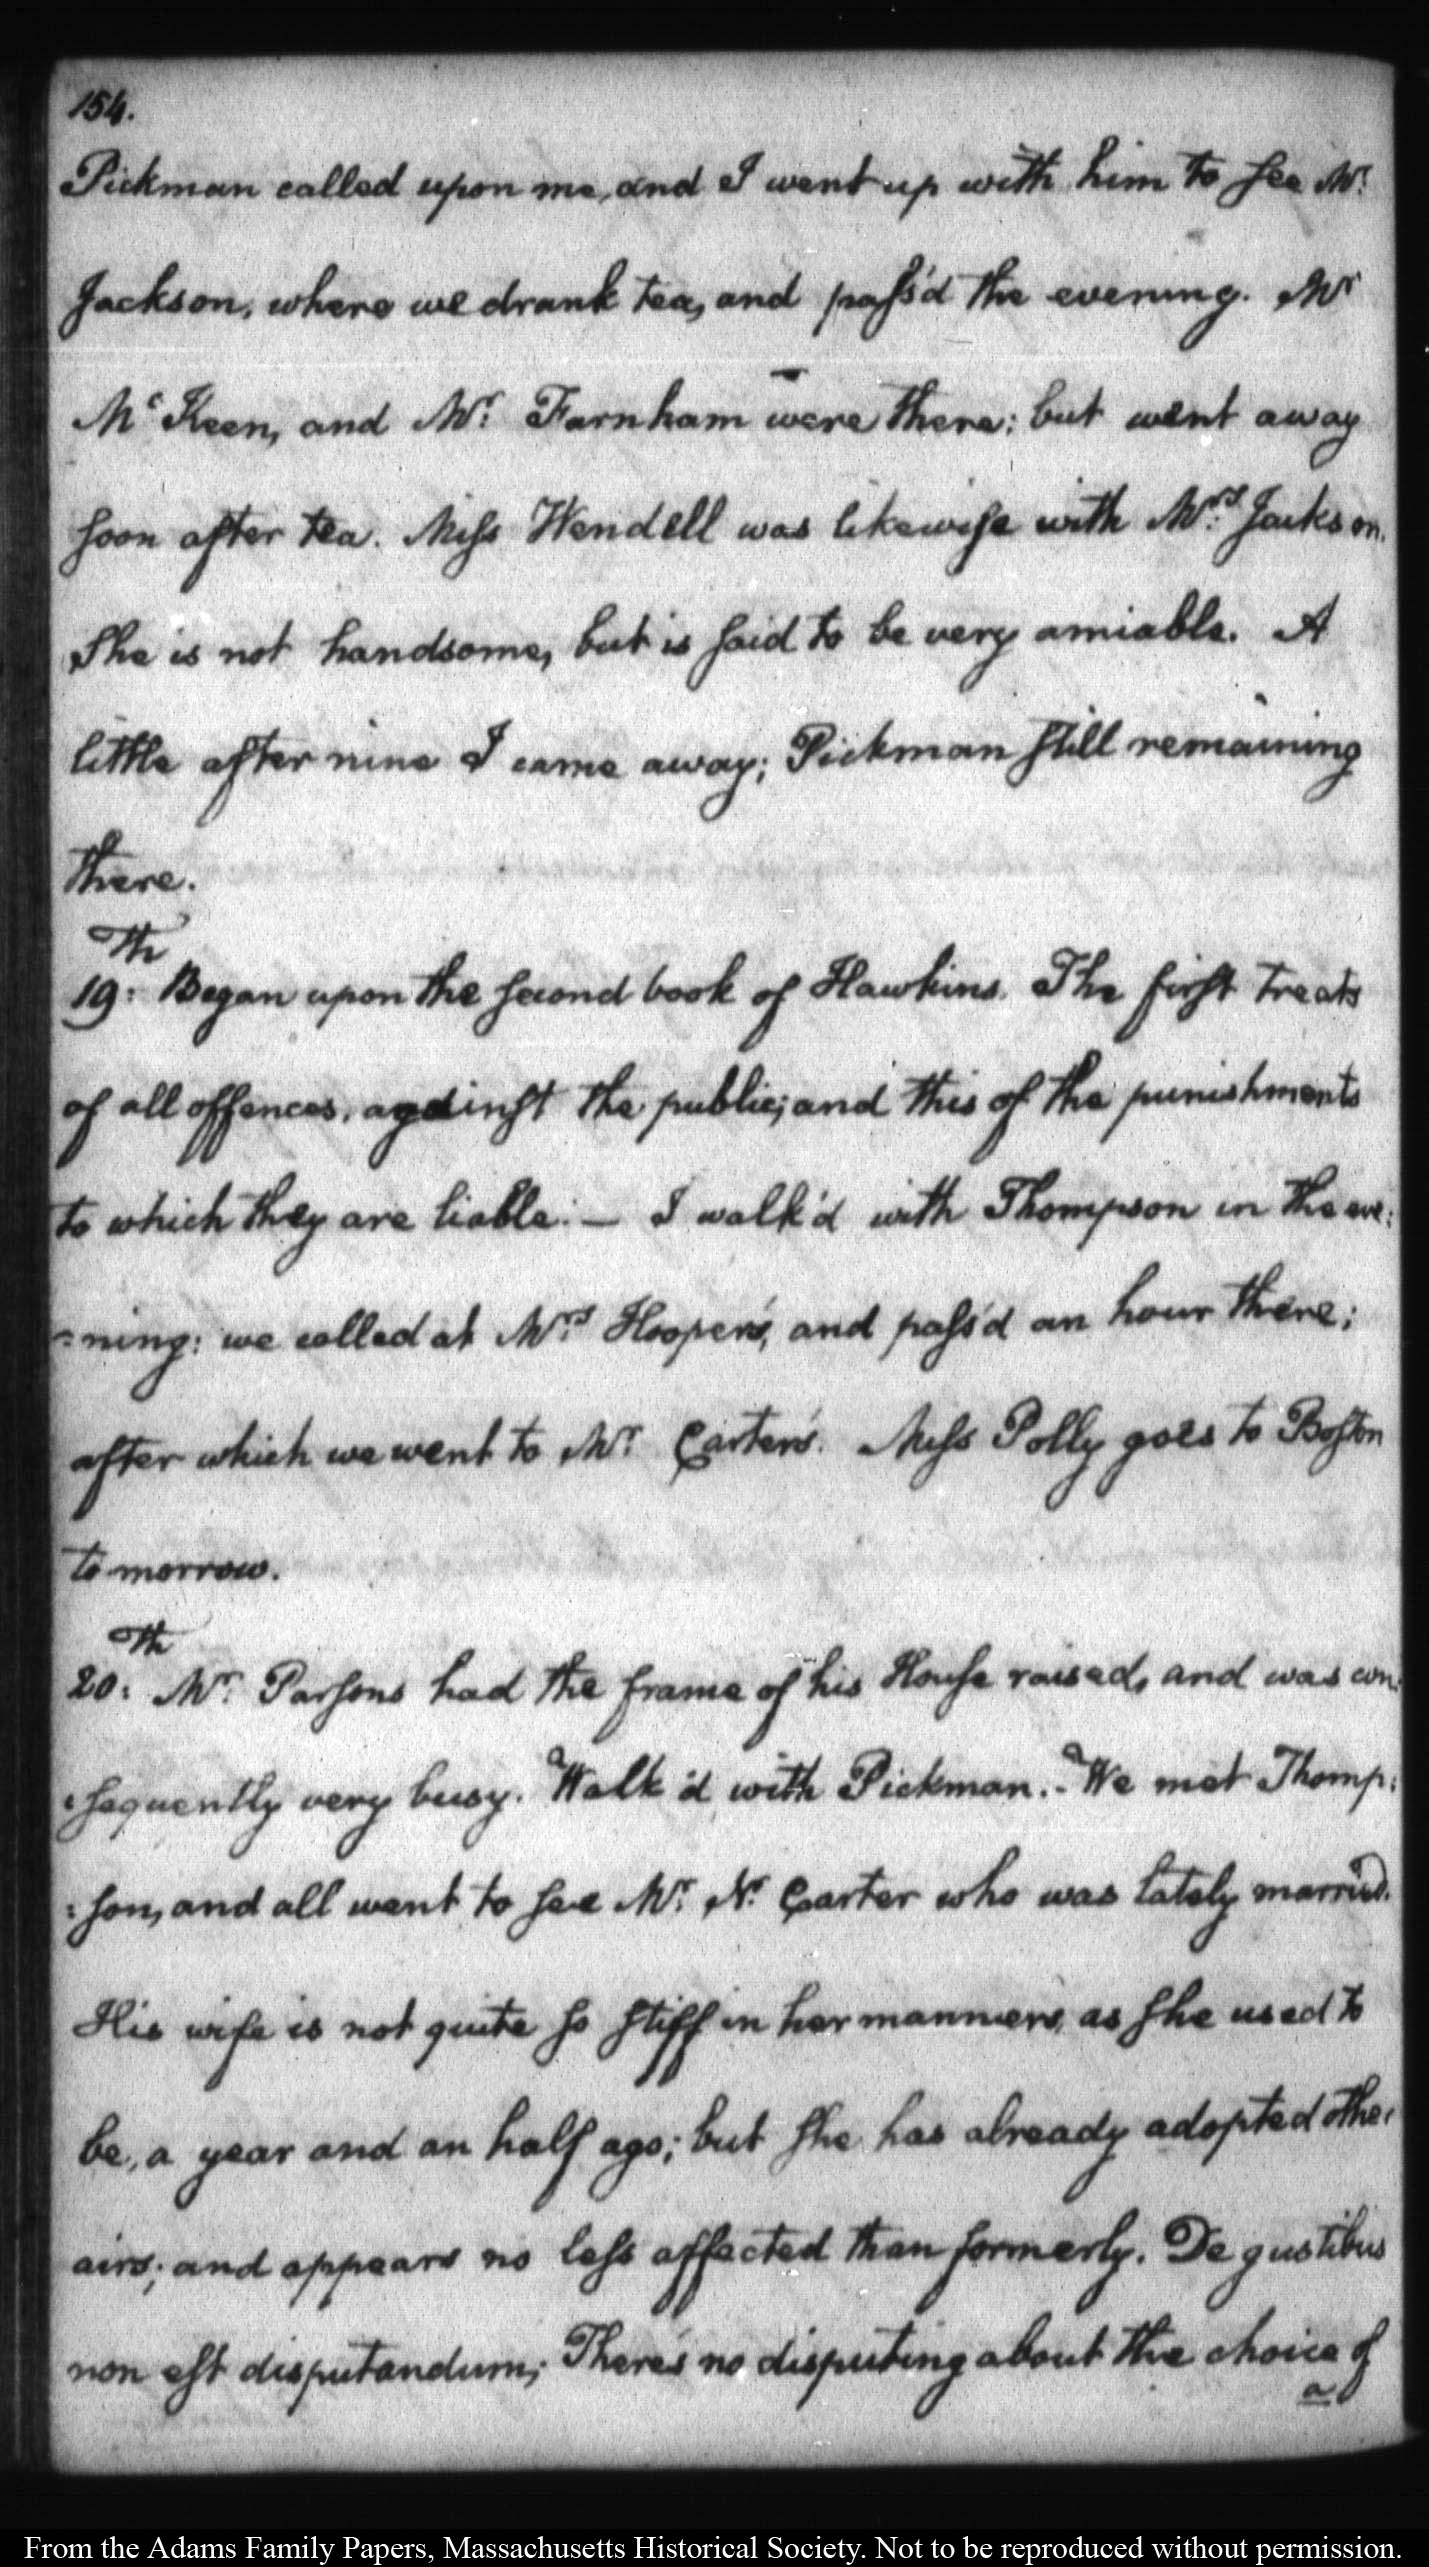 154.
Pickman called upon me, and I went up with him to see Mr.
Jackson, where we drank tea, and pass'd the evening. Mr
McKeen, and Mr. Farnham were there: but went away
soon after tea. Miss Wendell was likewise with Mrs. Jackson.
She is not handsome, but is said to be very amiable. A
little after nine I came away; Pickman still remaining
there.
19:th Began upon the second book of Hawkins. The first treats
of all offences, against the public; and this of the punishments
to which they are liable. — I walk'd with Thompson in the eve:
:ning: we called at Mrs. Hooper's, and pass'd an hour there;
after which we went to Mr. Carter's. Miss Polly goes to Boston
to morrow.
20:th Mr. Parsons had the frame of his House raised, and was con:
:sequently very busy. Walk'd with Pickman. - We met Thomp:
:son, and all went to see Mr. N. Carter who was lately married.
His wife is not quite so stiff in her manners, as she used to
be, a year and an half ago; but she has already adopted other
airs; and appears no less affected than formerly. De gustibus
non est disputandum; There's no disputing about the choice of
a
From the Adams Family Papers, Massachusetts Historical Society. Not to be reproduced without permission.